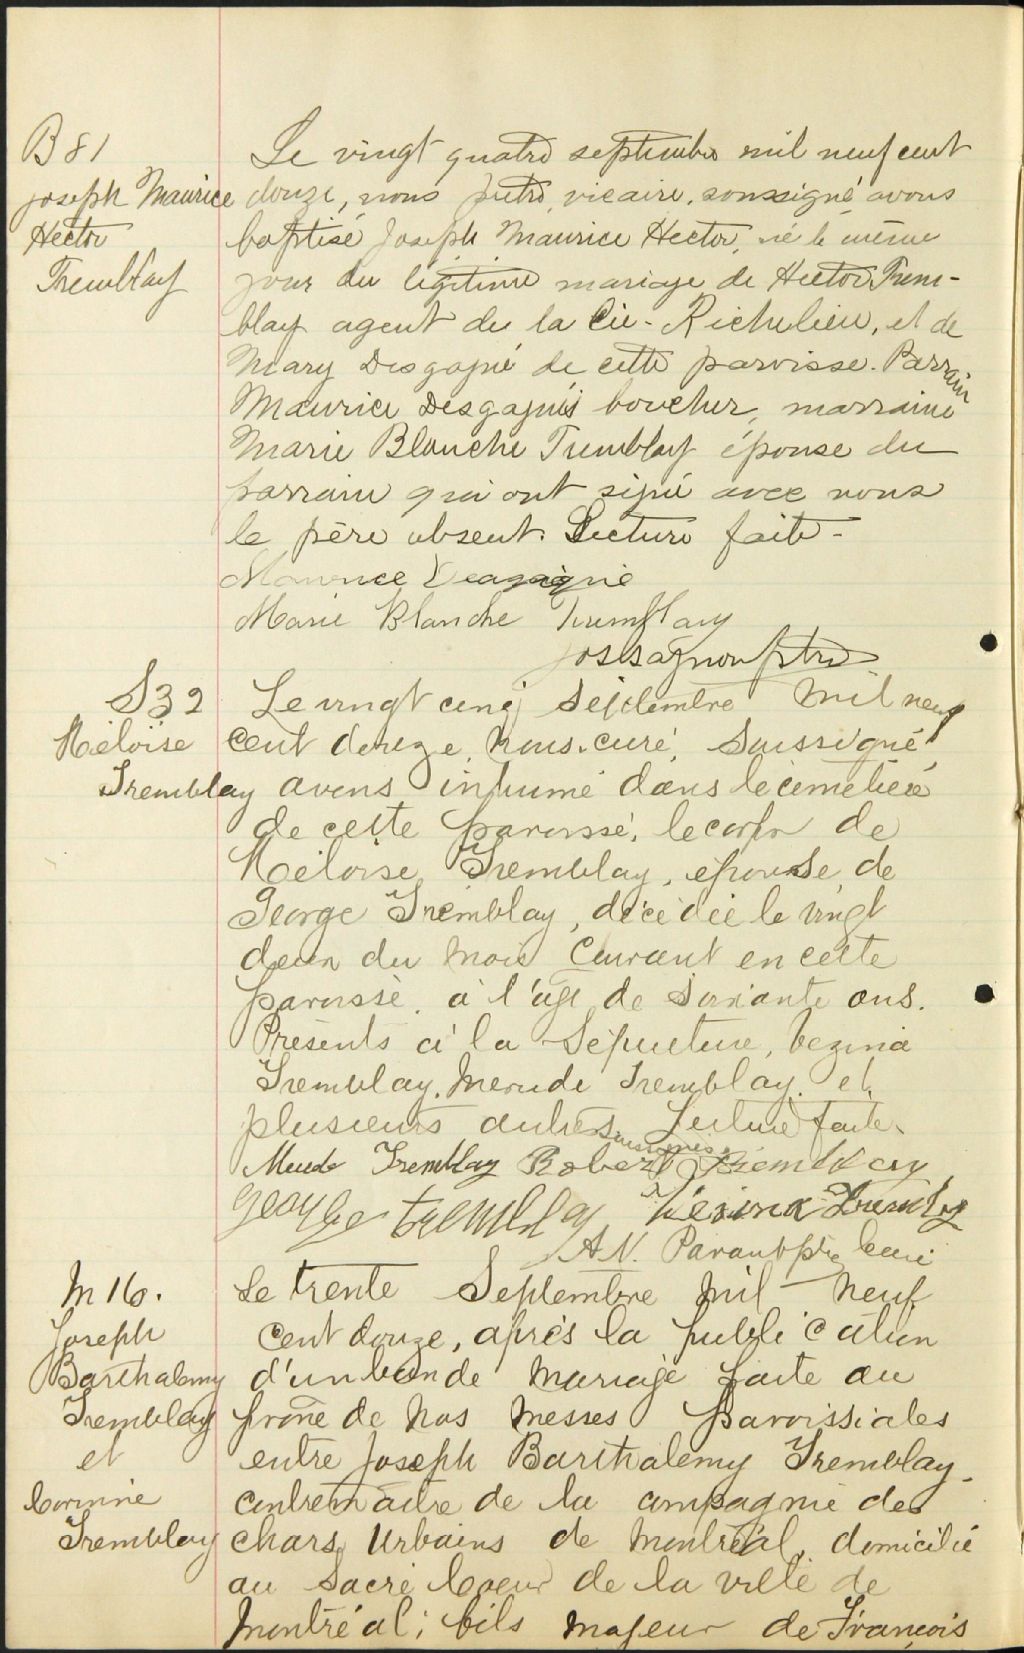 B 81
Joseph Maurice
Hector
Tremblay
Le vingt quatre septembre mil neuf cent
douze, nous ptre, vicaire, soussigné avons
baptisé Joseph Maurice Hector, né le même
jour du légitime mariage de Hector Trem-
blay agent de la Cie. Richelieu, et de
Mary Desgagné de cette paroisse. Parrain
Maurice Desgagnés boucher, marraine
Marie Blanche Tremblay épouse du
parrain qui ont signé avec nous
le père absent. Lecture faite-
Maurice Desgagné
Marie Blanche Tremblay
ptre
S32
Héloïse
Tremblay
Le vingt cinq Septembre mil neuf
cent douze, nous, curé, soussigné,
avons inhumé dans le cimetière
de cette paroisse, le corps de
Héloïse Tremblay, épouse de
George Tremblay, décédée le vingt
deux du mois courant en cette
paroisse, à l'âge de soixante ans.
Présents à la Sépulture,
Tremblay, Tremblay, et
plusieurs autres soussignés. Lecture faite.
Tremblay Robert Tremblay
George Tremblay Tremblay
A.N. Parant ptre Curé
M 16.
Joseph
Barthalemy
Tremblay
et
Corinne
Tremblay
Le trente Septembre mil neuf
cent douze, après la publication
d'un ban de mariage faite au
prône de nos messes paroissiales
entre Joseph Barthalemy Tremblay,
contremaître de la compagnie des
chars Urbains de Montréal, domicilié
au Sacré Coeur de la ville de
Montréal; fils majeur de François